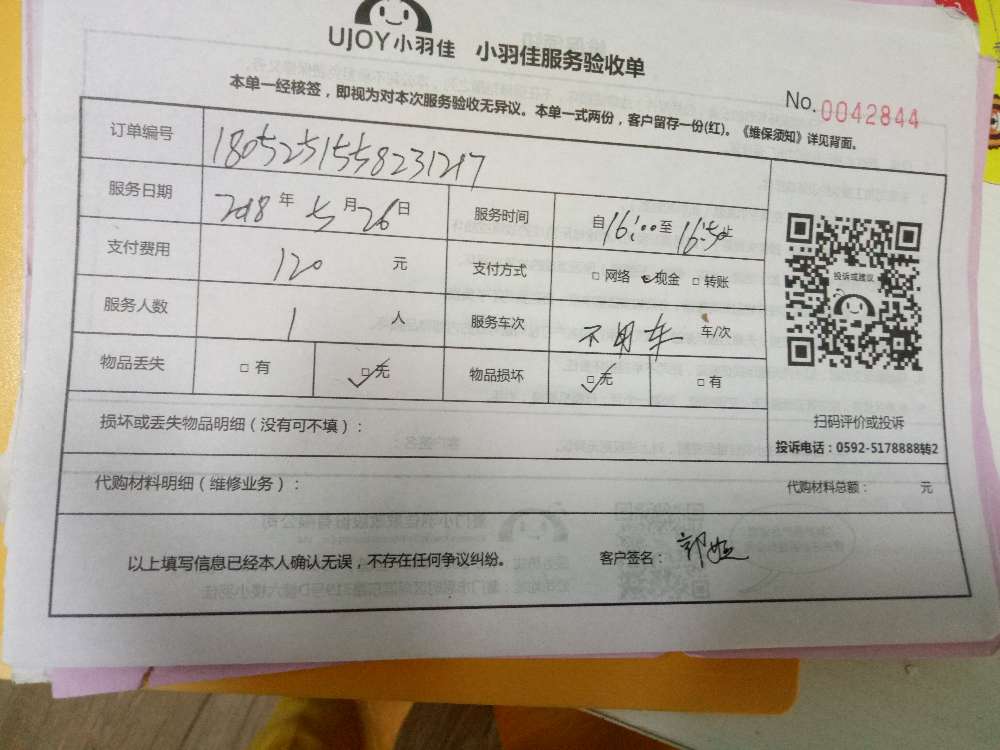 UJOY小羽佳 小羽佳服务验收单
本单一经核签，即视为对本次服务验收无异议。本单一式两份，客户留存一份(红)。《维保须知》详见背面。
No. 0042844
订单编号
服务日期 2018年5月26日 服务时间 自16:00至16:50止
支付费用 120 元 支付方式 □ 网络 ✓现金 □ 转账
服务人数 1 人 服务车次 不用车 车/次
物品丢失 □ 有 ☑无 物品损坏 ☑无 □ 有
投诉或建议
扫码评价或投诉
投诉电话：0592-5178888转2
损坏或丢失物品明细（没有可不填）：
代购材料明细（维修业务）： 代购材料总额： 元
以上填写信息已经本人确认无误，不存在任何争议纠纷。 客户签名：